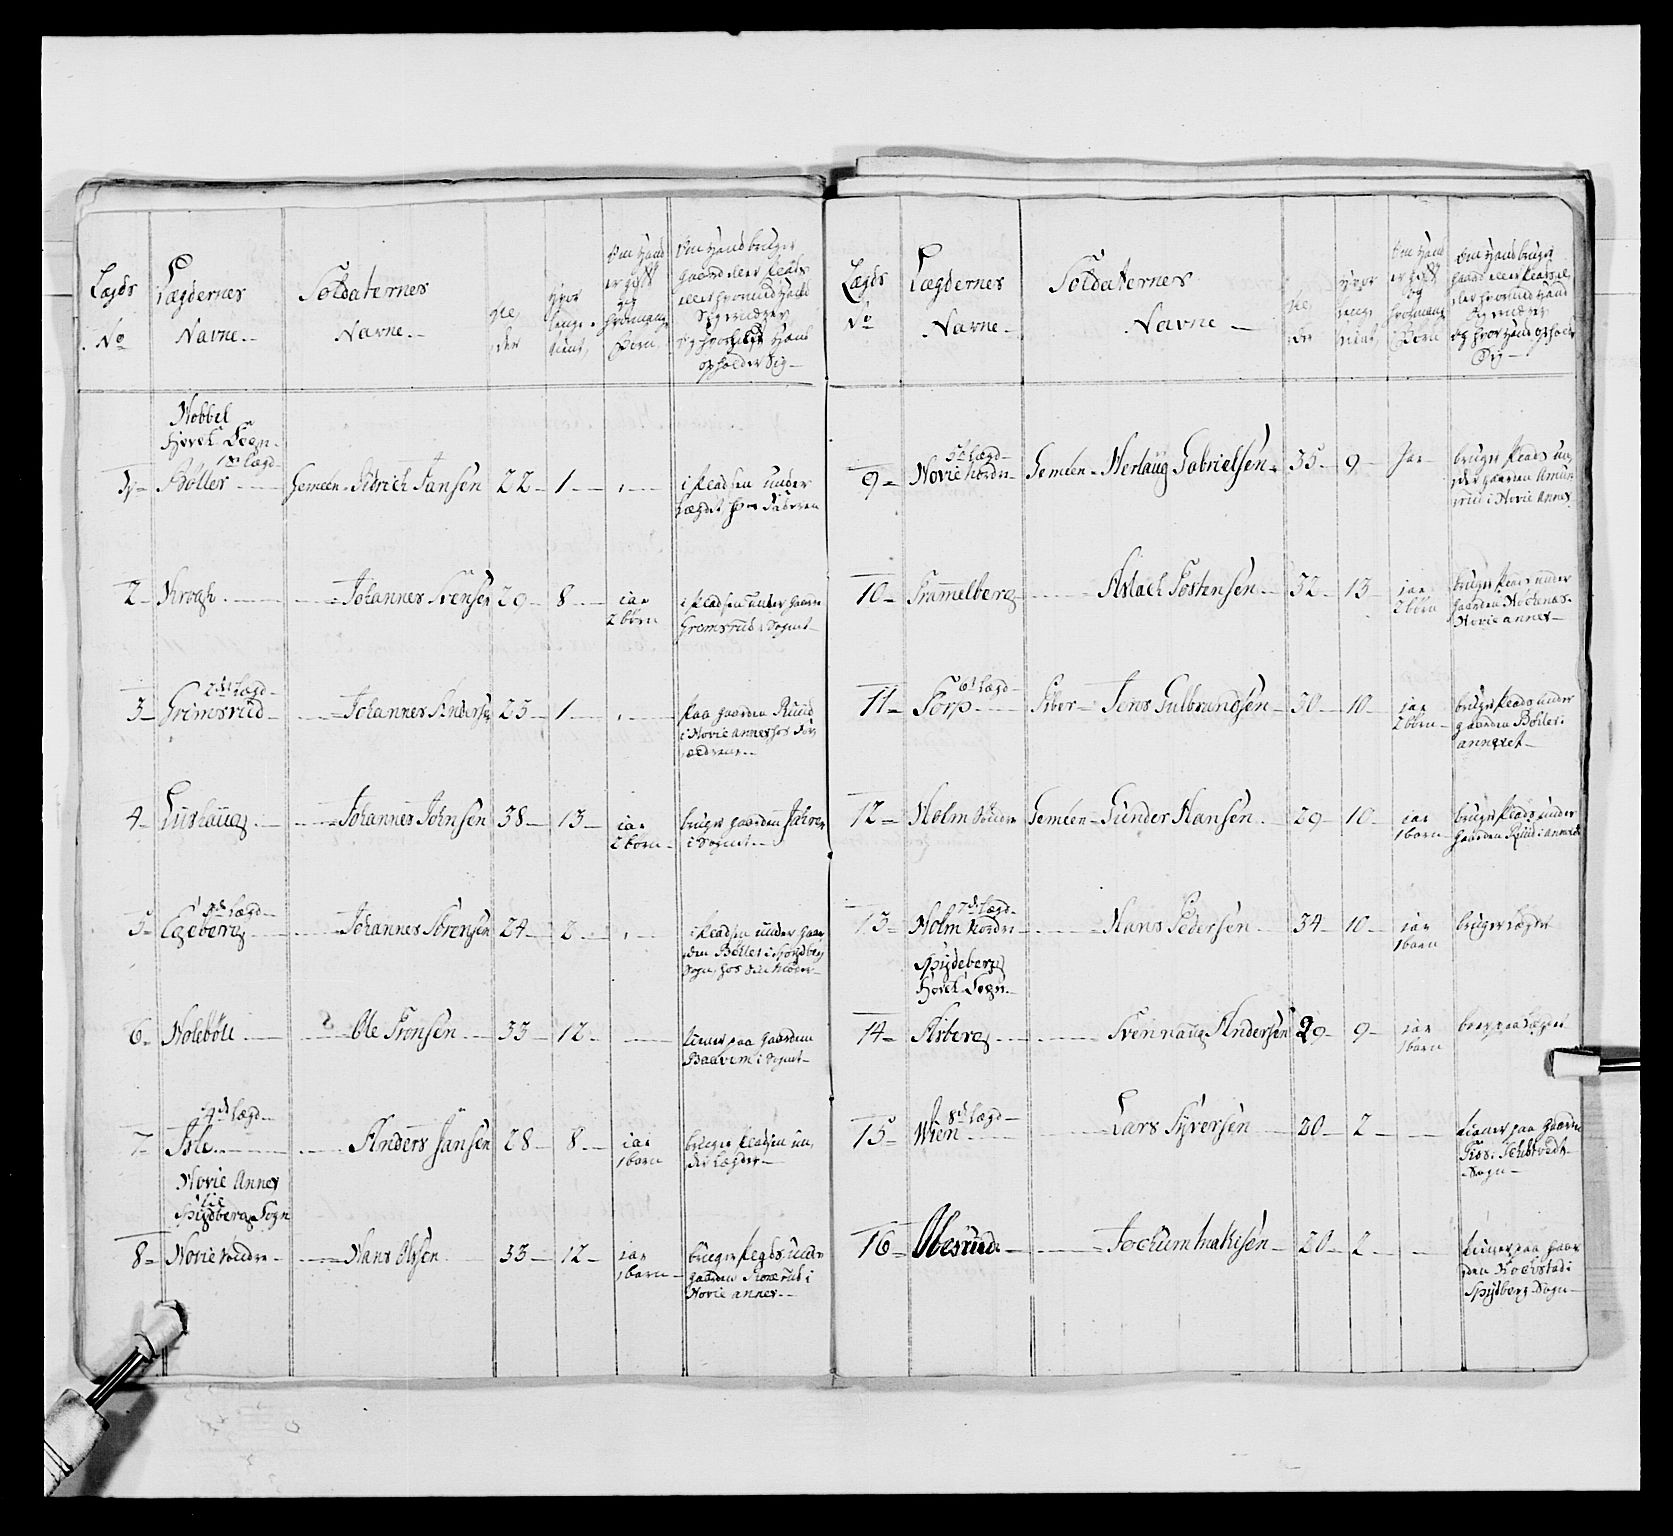 Lægds
No
Lægdernes
Navne.
Soldaternes
Navne.
Al,
der
Hvor
længe
tient,
Om Hand
er gift
og
hvormange
Børn
Om Hand bruger
Gaard eller Plads
eller hvormed Hand
Sig ernærer
og hvor Hand
opholder Sig
Hobbel
Hoved Sogn.
1ste Lægd
1, Böller Gemeen Didrich Jansen 22 1
i Pladsen under
Lægdet hos Faderen
2 Krogh Johannes Svensen 29 8 iaa
2 børn
i Pladsen under Gaarden
Gremsrud i Sognet
2det Lægd
3 Grimsrud Johannes Andersen 25 1
paa Gaarden Ruud
i Hovie annex hos For
ældrene
4 Lushaug Johannes Johnsen 38 13 iaa
2 børn
bruger Gaarden
i Sognet
3de Lægd
5 Egeberg Johannes Sörensen 24 2
i Pladsen under Gaar
den Böller i Spydberg
Sogn, hos sin Moder
6 Holeböll Ole Tronsen 33 12
tiener paa Gaarden
i Sognet
4de Lægd
7 Isle Anders Jansen 28 8 iaa
1 barn
bruger Pladsen un,
der Lægdet
Hovie Annex
til
Spydberg Sogn
8 Hovie Søndre Hans Olsen 33 12 iaa
1 barn
bruger Plads under
Gaarden i
Hovie annex
Lægds
No
Lægdernes
Navne
Soldaternes
Navne
Al,
der
Hvor
længe
tient
Om Hand
er gift
og
hvormange
Børn
Om Hand bruger
Gaard eller Plads el,
ler hvormed Hand
Sig ernærer
og hvor Hand opholder
Sig
5te Lægd
9 Hovie Nordre Gemeen Herlaug Gabrielsen 35 9 Jaa
bruger Plads un,
der Gaarden Amun
rud i Hovie Annex
10 Trammelberg Aslach Tostensen 32 13 iaa
2 børn
bruger Plads under
Gaarden
Hovie annex
6te Lægd
11 Torp Piber Jens Gulbrandsen 30 10 iaa
2 børn
bruger Plads under
Gaarden Böller i
annexet
12 Holm Søndre Gemeen Gunder Hansen 29 10 iaa
1 barn
bruger Plads under
Gaarden Ruud i annexet
7de Lægd
13 Holm Nordre Hans Pedersen 34 10 iaa
1 barn
bruger Lægdet
Spydeberg
Hoved Sogn.
14 Asberg Svennaug Andersen 29 9 iaa
1 barn
bruger paa Lægdet
8de Lægd
15 Wien Lars Syversen 20 2
tiener paa Gaarden
Sogn
16 Obesrud Jochum Isaksen 20 2
tiener paa Gaar
den i
Spydberg Sogn